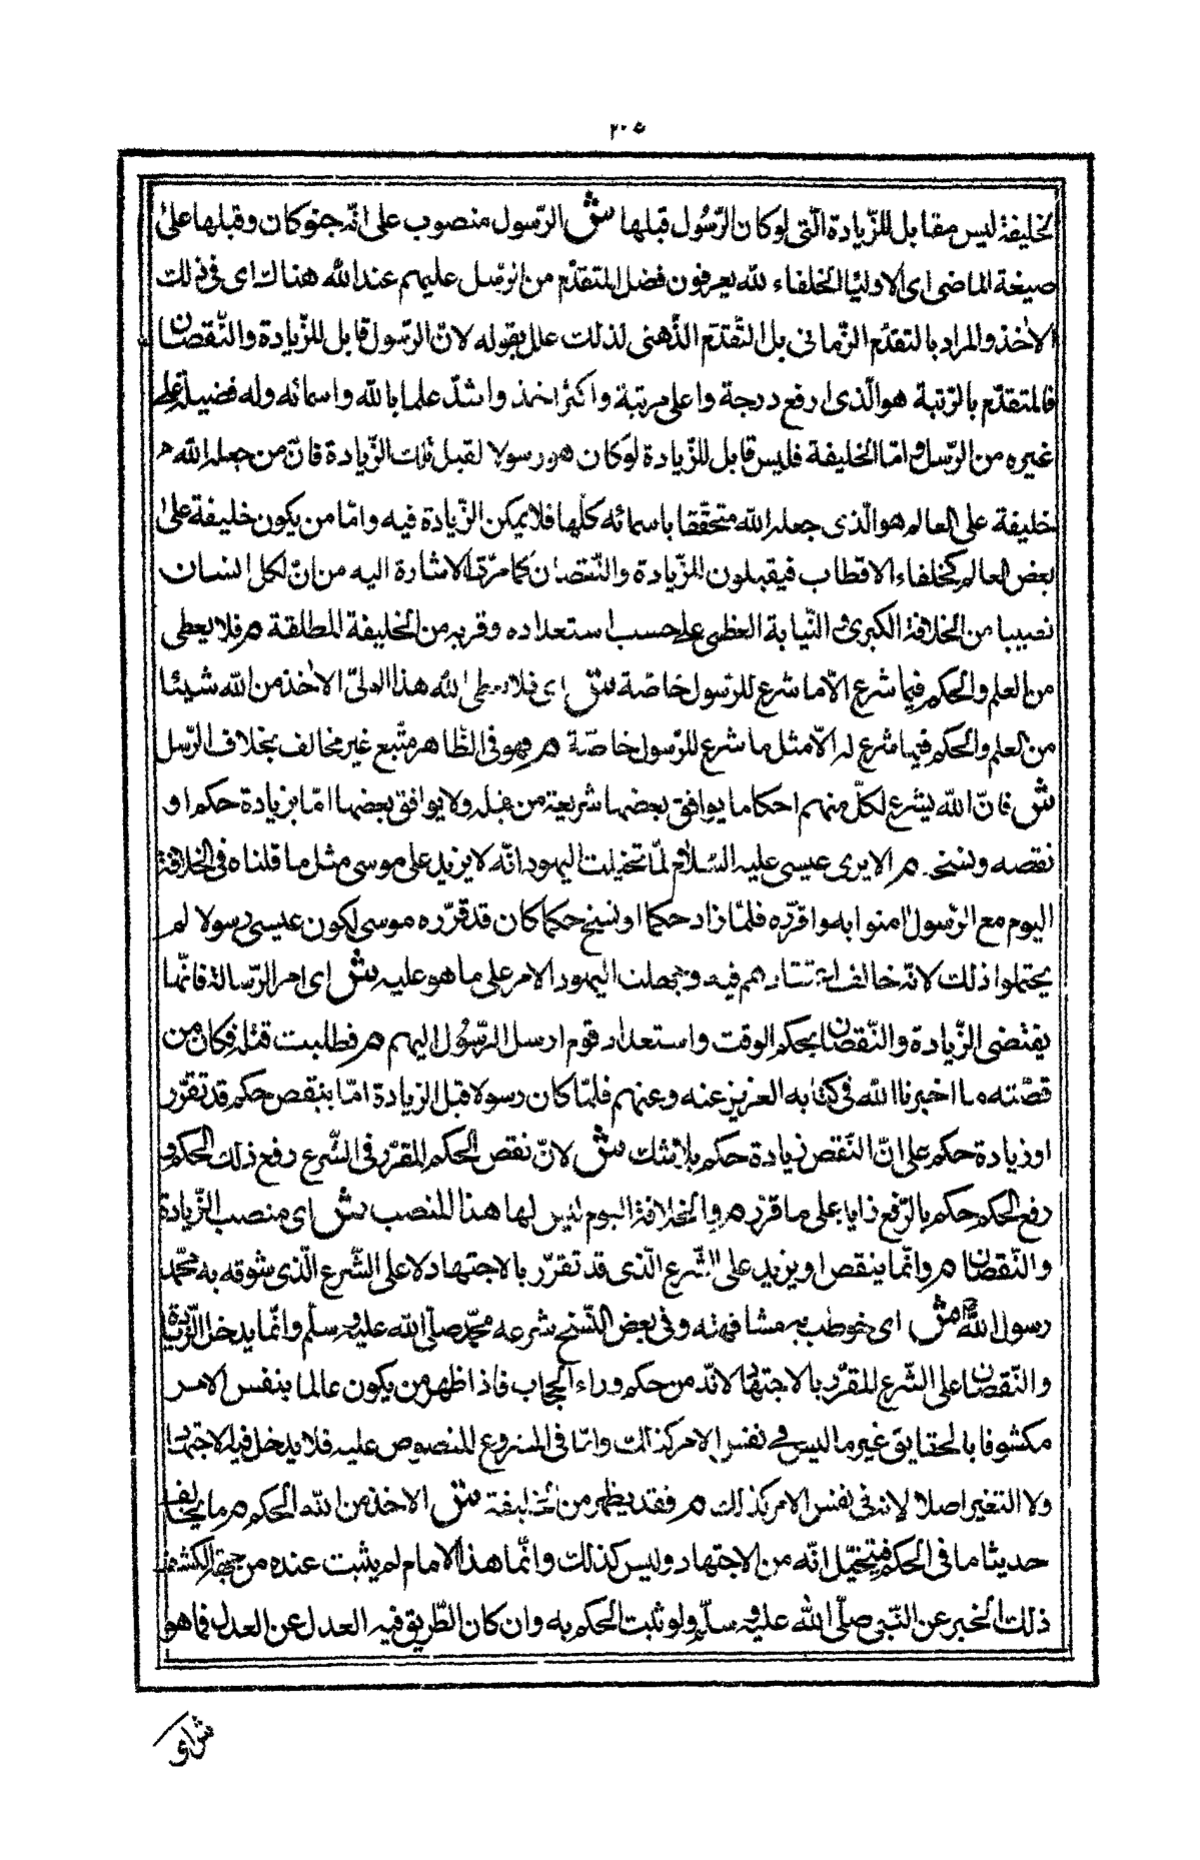 ٣٠٥
الخليفة ليس مقابل للزّيادة الّتى لوكان الرّسول قبلها ش الرّسول منصوب على انّه خبر كان وقبلها على
صيغة الماضى اى الاوليا الخلفاء لله يعرفون فضل المتقدّم من الرّسل عليهم عند الله هناك اى فى ذلك
الاخذ والمراد بالتقدّم الزّمانى بل التّقدّم الذّهنى لذلك علل بقوله لانّ الرّسول قابل للزّيادة والنّقصان
فالمتقدّم بالرّتبة هو الّذى ارفع درجة واعلى مرتبة واكثر اخذ واشدّ علما بالله واسمائه وله فضيلة على
غيره من الرّسل وامّا الخليفة فليس قابل للزّيادة لوكان هو رسولا لقبل تلك الزّيادة فانّ من جعله الله م
خليفة على العالم هو الّذى جعله الله متحقّقا باسمائه كلّها فلا يمكن الزّيادة فيه وامّا من يكون خليفة على
بعض العالم كخلفاء الاقطاب فيقبلون الزّيادة والنّقصان كما مرّت الاشارة اليه من انّ لكل انسان
نصيبا من الخلافة الكبرى والنّيابة العظمى على حسب استعداده وقربه من الخليفة المطلقة م فلا يعطى
من العلم والحكم فيما شرع الّا ما شرع للرّسول خاصّة ش اى فلا يعطى الله هذا الولىّ الاخذ من الله شيئا
من العلم والحكم فيما شرع له الّا مثل ما شرع للرّسول خاصّة م فهو فى الظّاهر متّبع غير مخالف بخلاف الرّسل
ش فانّ الله يشرع لكلّ منهم احكاما يوافق بعضها شريعة من قبله ولا يوافق بعضها امّا بزيادة حكم او
نقصه ونسخ م الا يرى عيسى عليه السّلام لمّا تخيلت اليهود انّه لا يزيد على موسى مثل ما قلناه فى الخلافة
اليوم مع الرّسول امنوا به واقرّه فلمّا زاد حكما او نسخ حكما كان قد قرّره موسى لكون عيسى رسولا لم
يحتملوا ذلك لانّه خالف اعتقادهم فيه وجهلت اليهود الامر على ما هو عليه ش اى امر الرّسالة فانّها
يقتضى الزّيادة والنّقصان بحكم الوقت واستعداد قوم ارسل الرّسول اليهم م فطلبت قتله فكان من
قصّته ما اخبرنا الله فى كتابه العزيز عنه وعنهم فلمّا كان رسولا قبل الزيادة امّا بنقص حكم قد تقرّر
او زيادة حكم على انّ النّقص زيادة حكم بلا شك ش لانّ نقص الحكم المقرّر فى الشّرع رفع ذلك الحكم و
رفع الحكم حكم بالرّفع زايد على ما قرّر م والخلافة اليوم ليس لها هذا المنصب ش اى منصب الزّيادة
والنّقصان م وانّما ينقص او يزيد على الشّرع الّذى قد تقرّر بالاجتهاد لا على الشّرع الّذى شوفه به محمّد
رسول الله ش اى خوطب به مشافهته وفى بعض النّسخ شرعه محمّد صلّى الله عليه وسلّم وانّما يدخل الزّيادة
والنّقصان على الشّرع المقرّر بالاجتهاد لانّه من حكم وراء الحجاب فاذا ظهر من يكون عالما بنفس الامر
مكشوفا بالحقايق غير ما ليس فى نفس الامر كذلك وامّا فى المشروع المنصوص عليه فلا يدخل فيه الاجتهاد
ولا التغير اصلا لانه فى نفس الامر كذلك م فقد يظهر من الخليفة ش الاخذ من الله الحكم م ما يخالف
حديثا ما فى الحكم فيتخيّل انّه من الاجتهاد وليس كذلك وانّما هذا الامام لم يثبت عنده من جهة الكشف
ذلك الخبر عن النّبى صلّى الله عليه وسلّم ولو ثبت الحكم به وان كان الطّريق فيه العدل عن العدل فما هو
ش اى